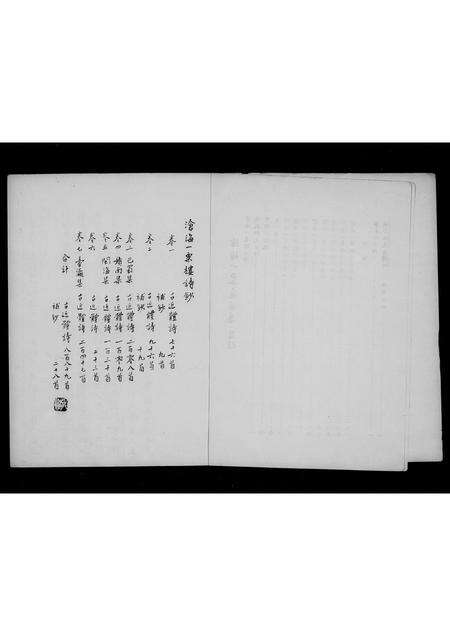 滄海一粟樓詩鈔
卷一 古近體詩 七十六首
補鈔 九首
卷二 古近體詩 九十六首
補鈔 十九首
卷三 集 古近體詩 二百零八首
卷四 南集 古近體詩 一百零九首
卷五 閩海集 古近體詩 一百三十首
卷六 古近體詩 二十三首
卷七 集 古近體詩 二百四十七首
合計 古近體詩 八百八十九首
補鈔 二十八首